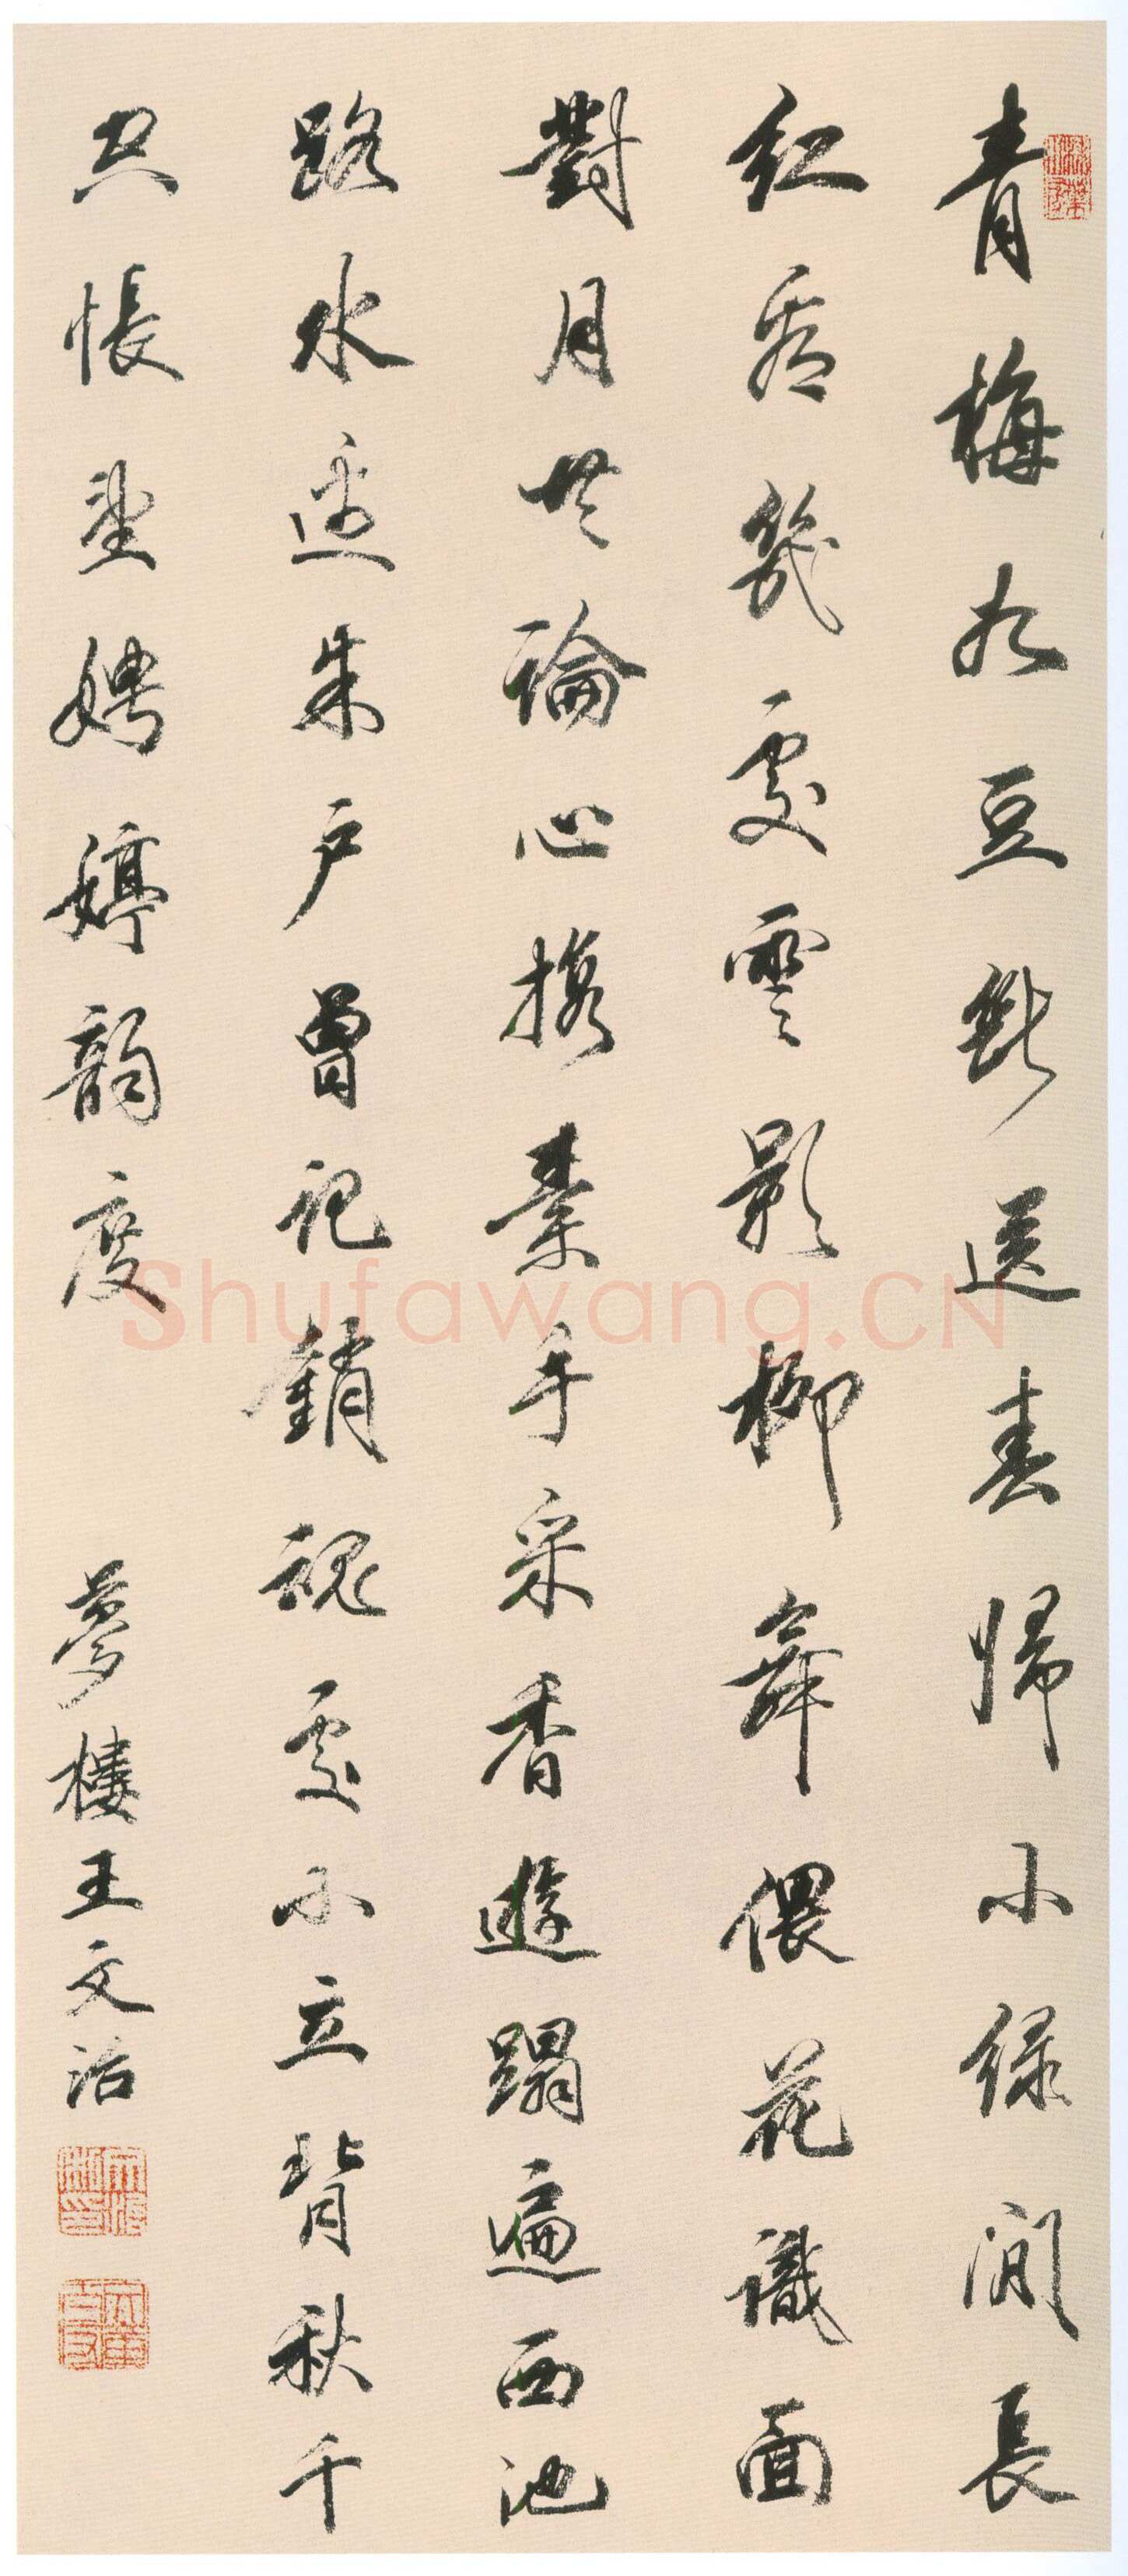 青梅如豆斷送春歸小綠間長
紅看幾處雲影柳舞偎花識面
對月共論心携素手采香遊蹋遍西池
路水邊朱戶曾記銷魂處小立背秋千
空悵望娉婷韵度
夢樓王文治
Shufawang.CN